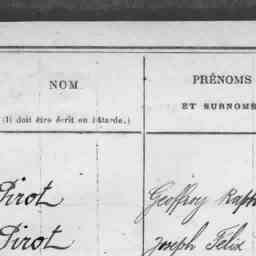 NOM
(Il doit être écrit en bâtarde.)
PRÉNOMS
ET SURNOMS
Pirot
Geoffroy Raph
Pirot
Joseph Felix